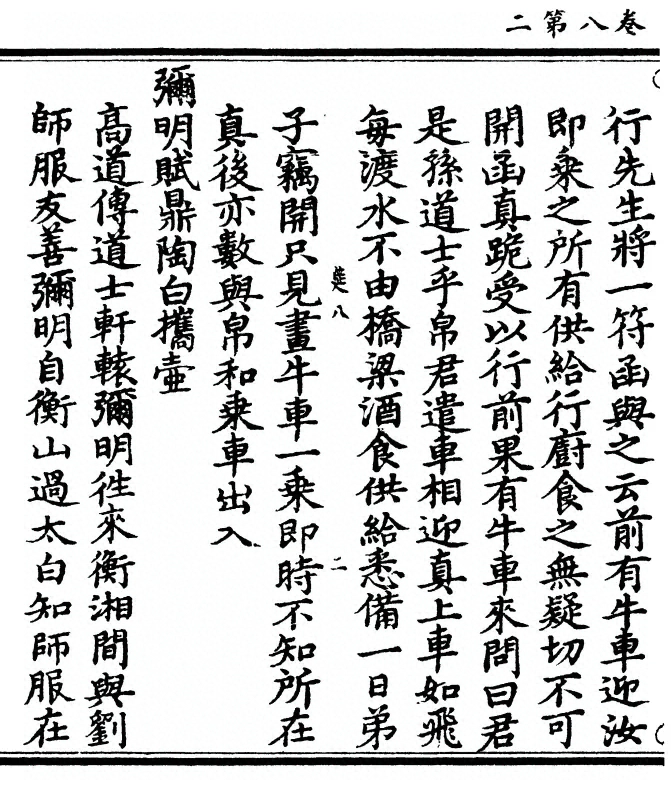 卷八第二
行先生將一符函與之云前有牛車迎汝
即乘之所有供給行廚食之無疑切不可
開函真跪受以行前果有牛車來問曰君
是孫道士乎帛君遣車相迎真上車如飛
每渡水不由橋梁酒食供給悉備一日弟
八
二
子竊開只見畫牛車一乘即時不知所在
真後亦數與帛和乘車出入
彌明賦鼎陶白攜壺
高道傳道士軒轅彌明徃來衡湘間與劉
師服友善彌明自衡山過太白知師服在